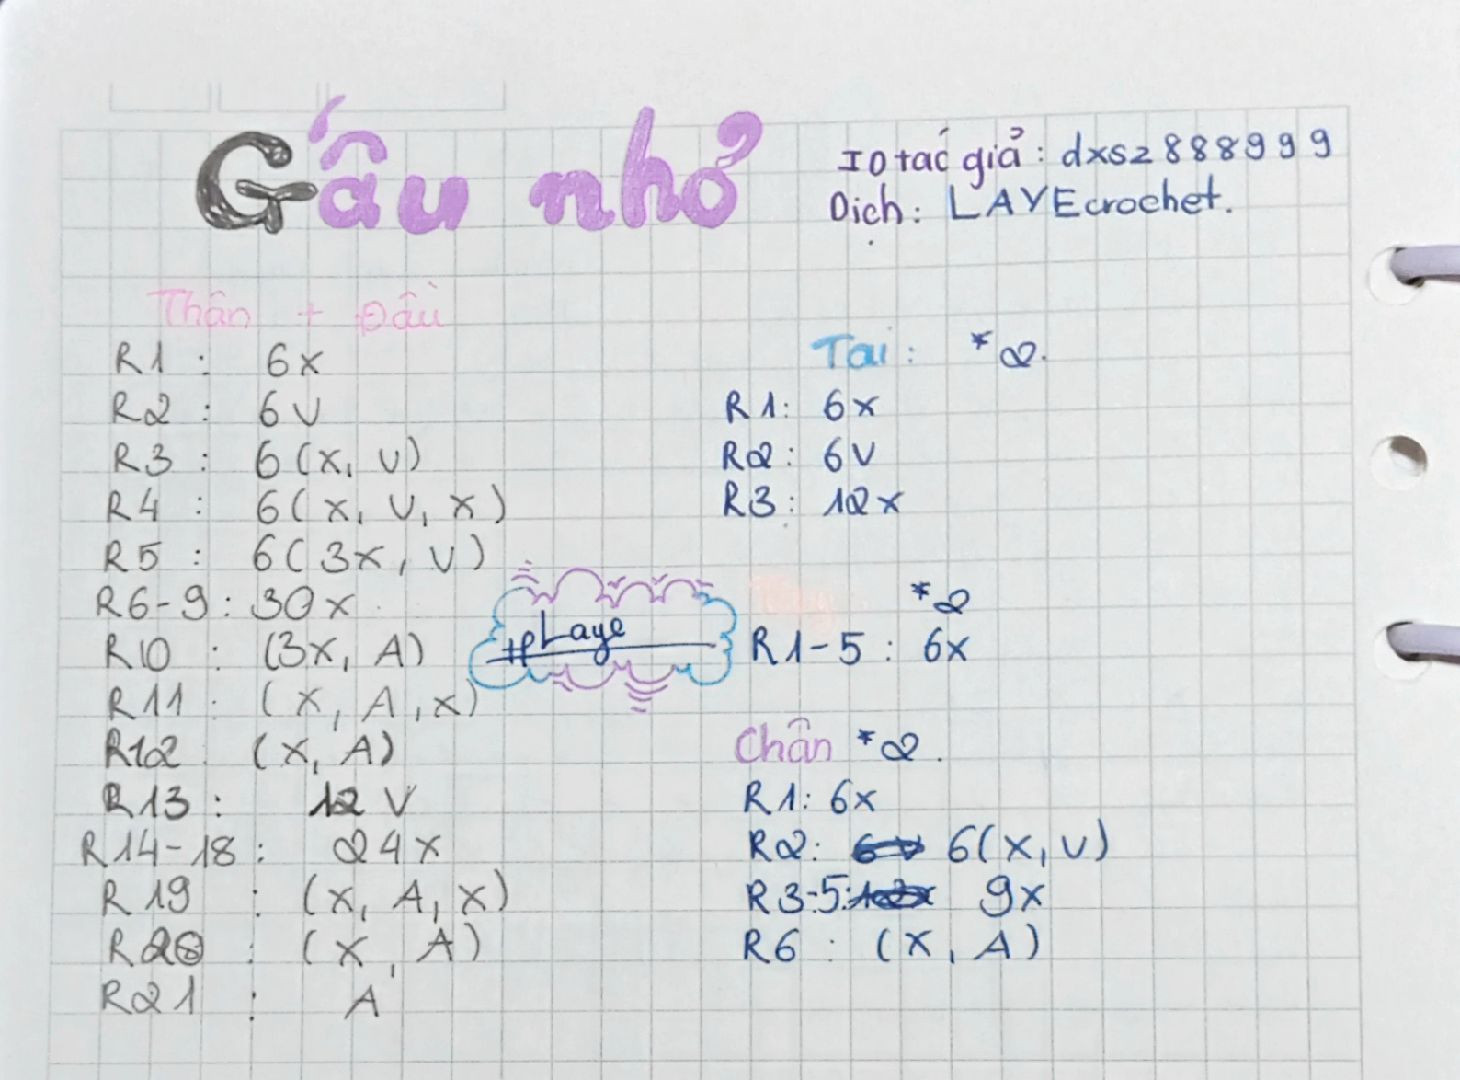 Gấu nhỏ
ID tác giả: dxsz888999
Dịch: LAYEcrochet.
Thân + Đầu
R1 : 6x
R2 : 6V
R3 : 6(x, V)
R4 : 6(x, V, x)
R5 : 6(3x, V)
R6-9: 30x
R10 : (3x, A)
R11 : (x, A, x)
R12 (x, A)
R13 : 12 V
R14-18: 24x
R19 : (x, A, x)
R20 : (x, A)
R21 : A
Tai: *2.
R1: 6x
R2: 6V
R3: 12x
#pLaye
*2
R1-5: 6x
Chân *2.
R1: 6x
R2: 6(x, V)
R3-5: 9x
R6: (x, A)